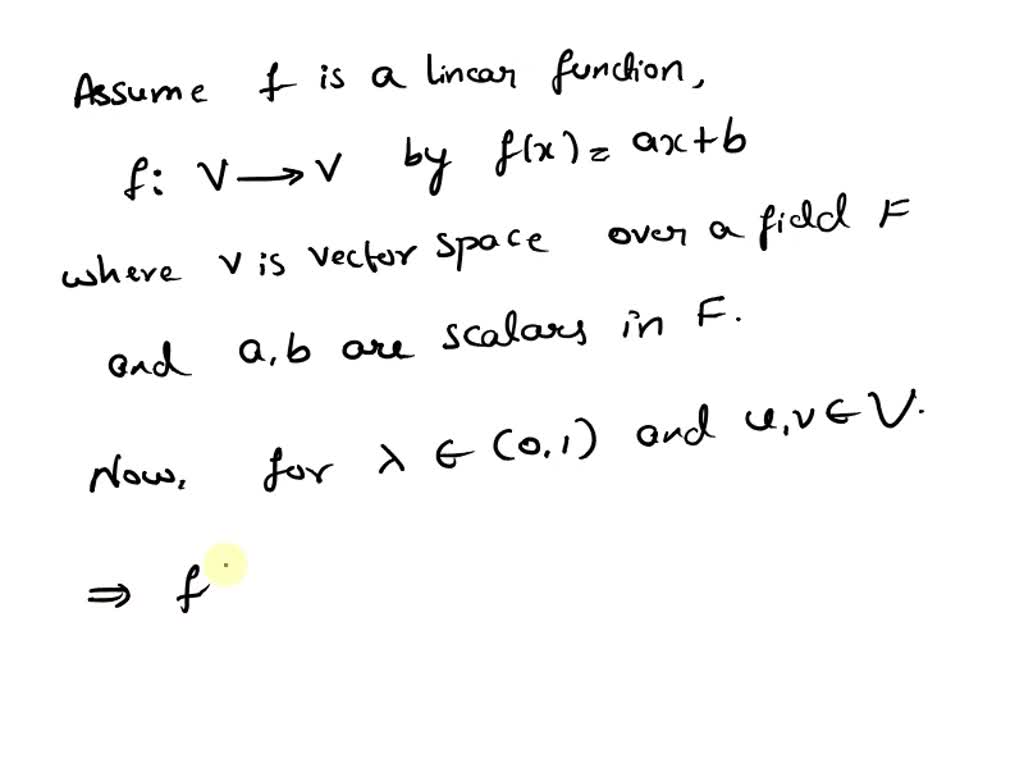 Assume f is a linear function,
f: V → V by f(x) = ax+b
where V is vector space over a field F
and a, b are scalars in F.
Now, for λ ∈ (0,1) and u,v ∈ V.
⇒ f